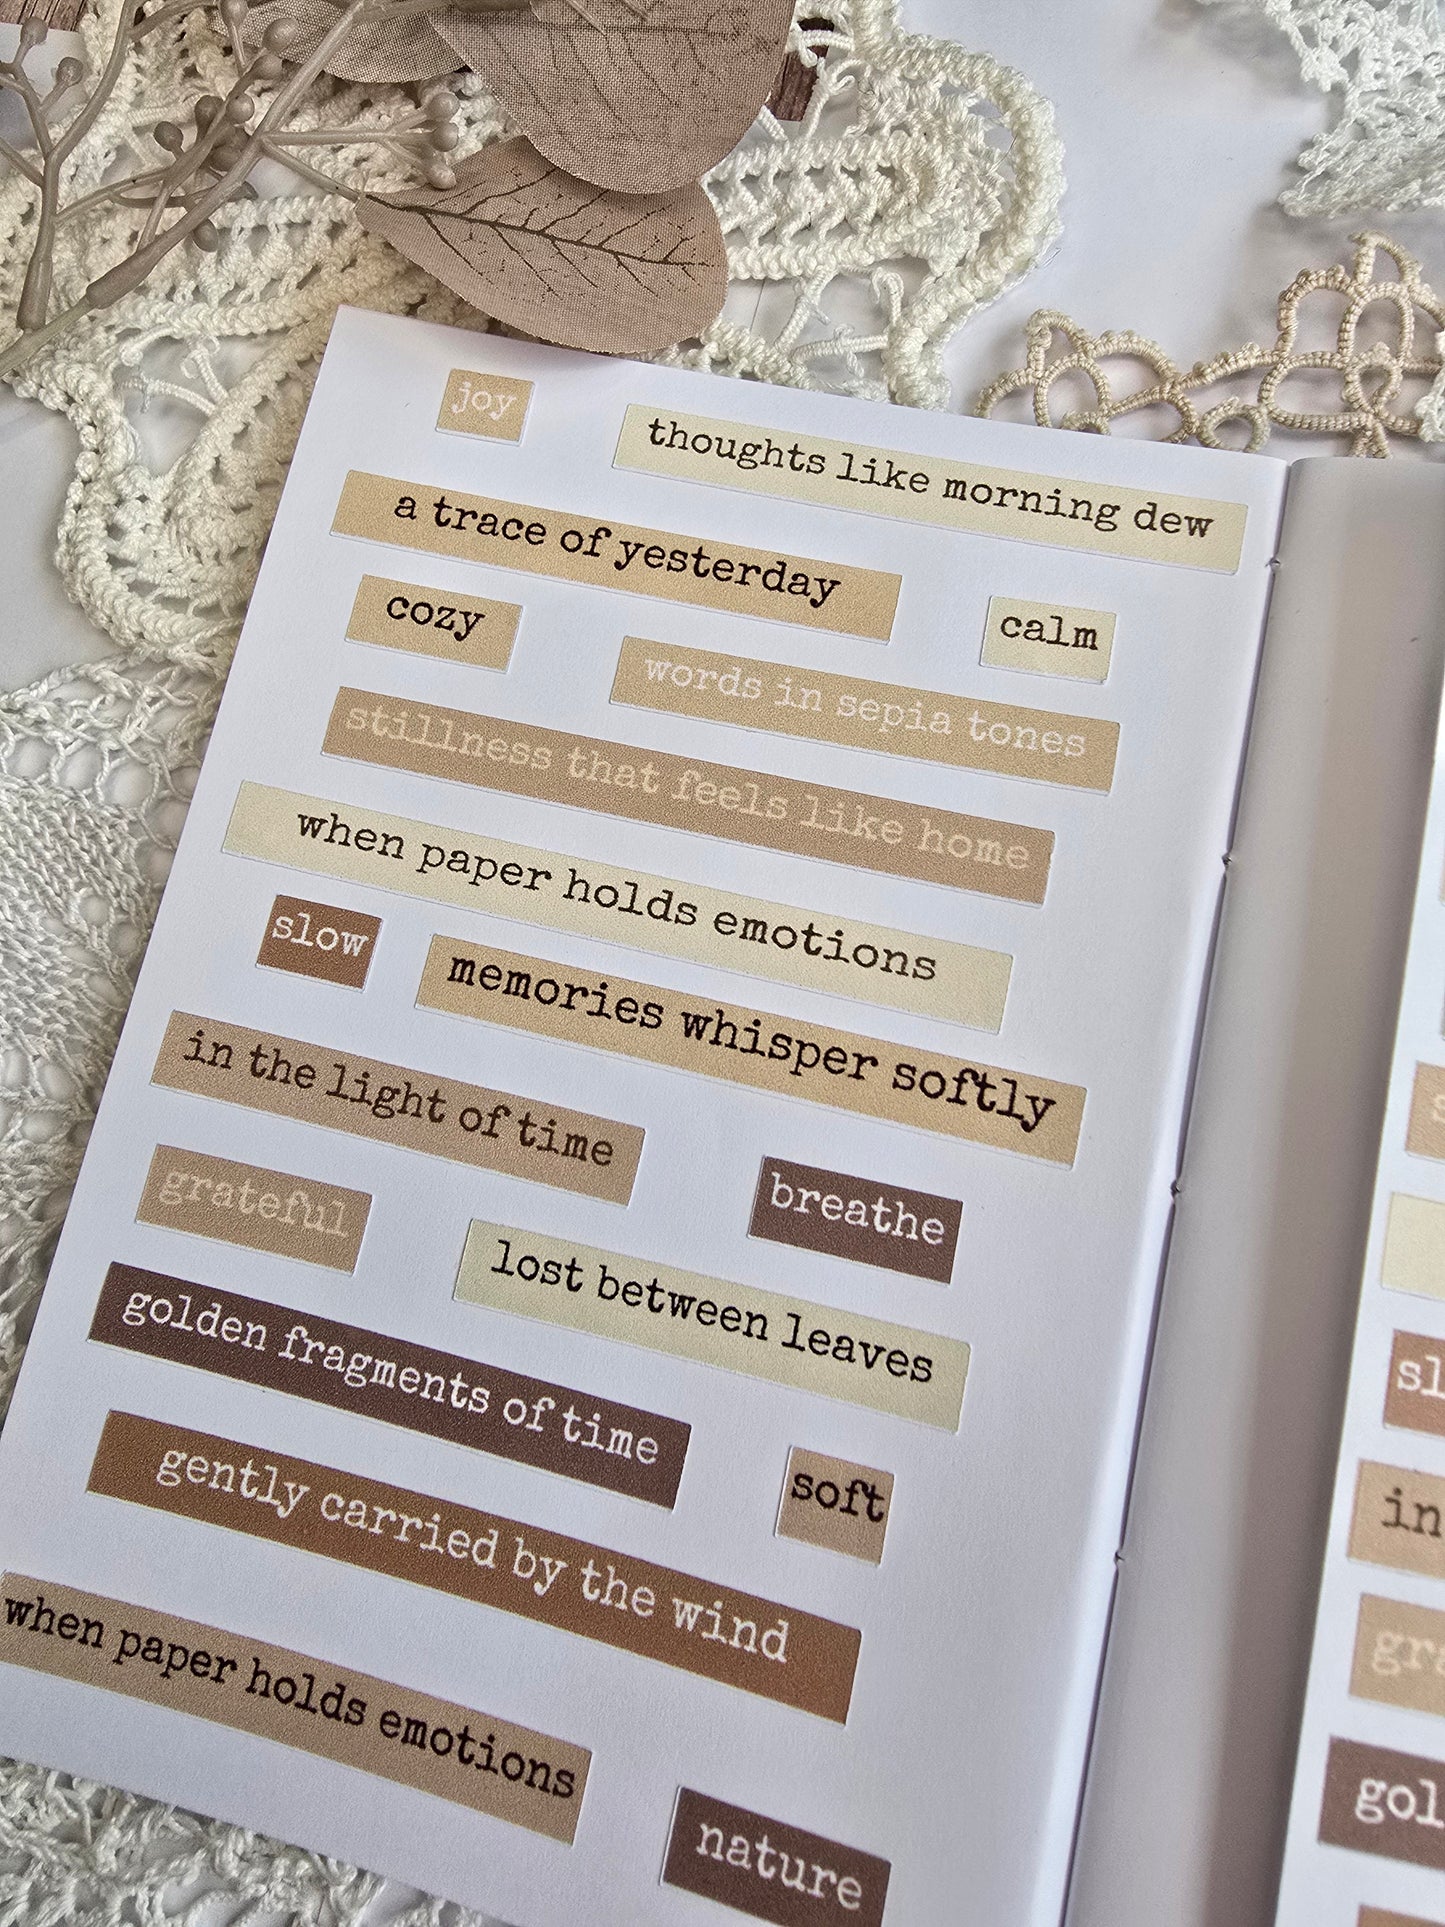 joy
thoughts like morning dew
a trace of yesterday
cozy
calm
words in sepia tones
stillness that feels like home
when paper holds emotions
slow
memories whisper softly
in the light of time
breathe
grateful
lost between leaves
golden fragments of time
soft
gently carried by the wind
when paper holds emotions
nature
sl
in
gra
gol